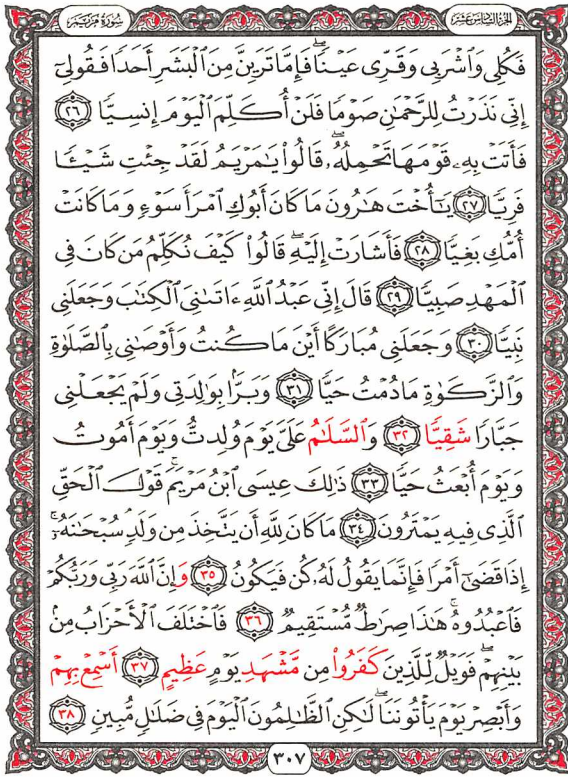 الجزء السادس عشر
سورة مريم
فَكُلِى وَٱشْرَبِى وَقَرِّى عَيْنًاۖ فَإِمَّا تَرَيِنَّ مِنَ ٱلْبَشَرِ أَحَدًا فَقُولِىٓ
إِنِّى نَذَرْتُ لِلرَّحْمَٰنِ صَوْمًا فَلَنْ أُكَلِّمَ ٱلْيَوْمَ إِنسِيًّا ٢٦
فَأَتَتْ بِهِۦ قَوْمَهَا تَحْمِلُهُۥۖ قَالُوا۟ يَٰمَرْيَمُ لَقَدْ جِئْتِ شَيْـًٔا
فَرِيًّا ٢٧ يَٰٓأُخْتَ هَٰرُونَ مَا كَانَ أَبُوكِ ٱمْرَأَ سَوْءٍ وَمَا كَانَتْ
أُمُّكِ بَغِيًّا ٢٨ فَأَشَارَتْ إِلَيْهِۖ قَالُوا۟ كَيْفَ نُكَلِّمُ مَن كَانَ فِى
ٱلْمَهْدِ صَبِيًّا ٢٩ قَالَ إِنِّى عَبْدُ ٱللَّهِ ءَاتَىٰنِىَ ٱلْكِتَٰبَ وَجَعَلَنِى
نَبِيًّا ٣٠ وَجَعَلَنِى مُبَارَكًا أَيْنَ مَا كُنتُ وَأَوْصَٰنِى بِٱلصَّلَوٰةِ
وَٱلزَّكَوٰةِ مَا دُمْتُ حَيًّا ٣١ وَبَرًّۢا بِوَٰلِدَتِى وَلَمْ يَجْعَلْنِى
جَبَّارًا شَقِيًّا ٣٢ وَٱلسَّلَٰمُ عَلَىَّ يَوْمَ وُلِدتُّ وَيَوْمَ أَمُوتُ
وَيَوْمَ أُبْعَثُ حَيًّا ٣٣ ذَٰلِكَ عِيسَى ٱبْنُ مَرْيَمَۚ قَوْلَ ٱلْحَقِّ
ٱلَّذِى فِيهِ يَمْتَرُونَ ٣٤ مَا كَانَ لِلَّهِ أَن يَتَّخِذَ مِن وَلَدٍۖ سُبْحَٰنَهُۥٓۚ
إِذَا قَضَىٰٓ أَمْرًا فَإِنَّمَا يَقُولُ لَهُۥ كُن فَيَكُونُ ٣٥ وَإِنَّ ٱللَّهَ رَبِّى وَرَبُّكُمْ
فَٱعْبُدُوهُۚ هَٰذَا صِرَٰطٌ مُّسْتَقِيمٌ ٣٦ فَٱخْتَلَفَ ٱلْأَحْزَابُ مِنۢ
بَيْنِهِمْۖ فَوَيْلٌ لِّلَّذِينَ كَفَرُوا۟ مِن مَّشْهَدِ يَوْمٍ عَظِيمٍ ٣٧ أَسْمِعْ بِهِمْ
وَأَبْصِرْ يَوْمَ يَأْتُونَنَاۖ لَٰكِنِ ٱلظَّٰلِمُونَ ٱلْيَوْمَ فِى ضَلَٰلٍ مُّبِينٍ ٣٨
٣٠٧